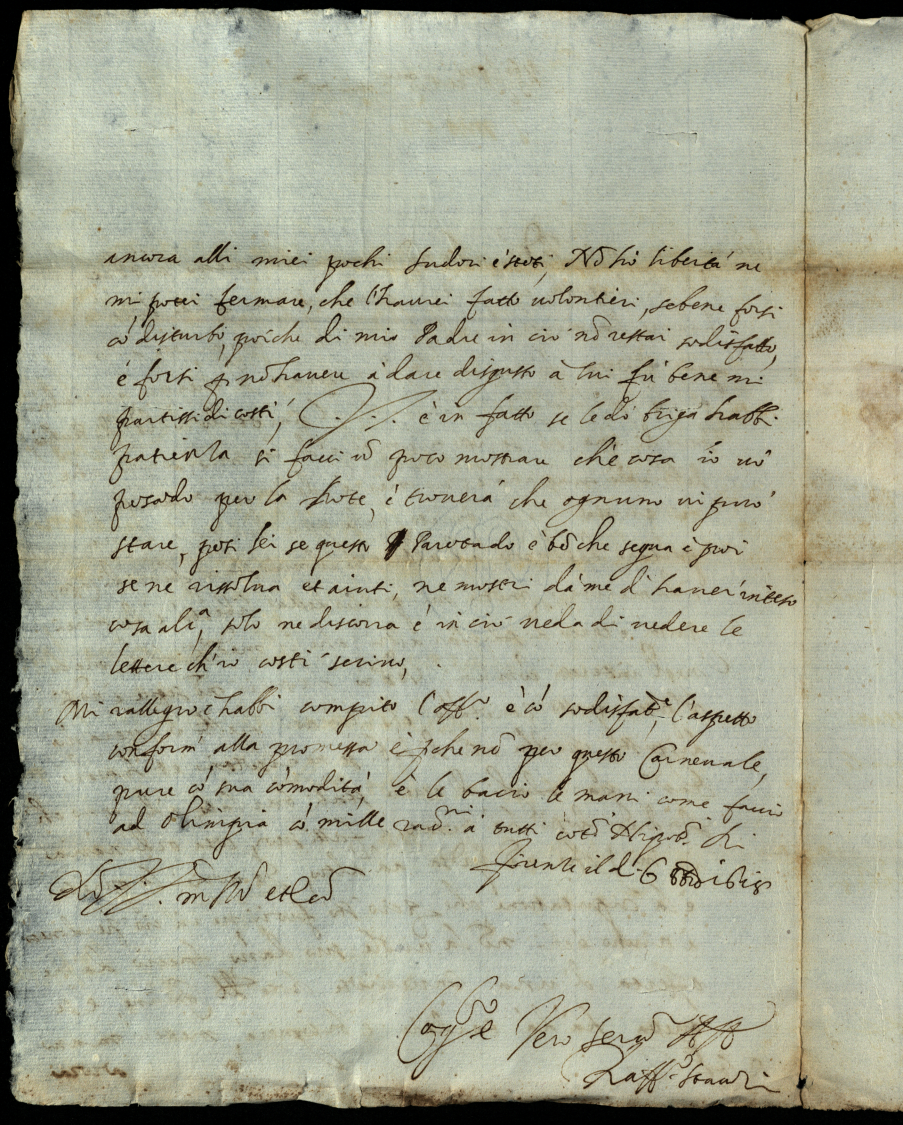 ancora alli miei pochi sudori è stoti, Nō hò libertà ne
mi potei fermare, che l'haurei fatto uolontieri, sebene forsi
cō disturbo, poiche di mio Padre in ciò nō restai sodisfatto,
é forsi p nō hauere à dare disgusto à lui fù bene mi
partissi di costì, V.S. è in fatto se le dò briga habbi
patienza si facci ū poco mostrare che cosa io uō
pesādo per la, é trouerà che ognuno ui puro
stare, poti lei se questo Parētado è bō che segua è poi
se ne rissolua et aiuti, ne mostri dà me d' hauer inteso
cosa alc.ª, solo ne discorra è in ciò ueda di uedere le
lettere ch'io costì scriuo,
Mi rallegro c'habbi compito l'off.º è cō sodisfat.ᵉ, l'aspetto
conform' alla promessa è pche nō per questo Carneuale,
pure cō sua cōmodità, è le bacio le mani come faccio
ad Olimpia cō mille racc.ni à tutti cotō Di
Firenze il dì 6 1618
Di V.S. m et
Vero Ser.
Raff.